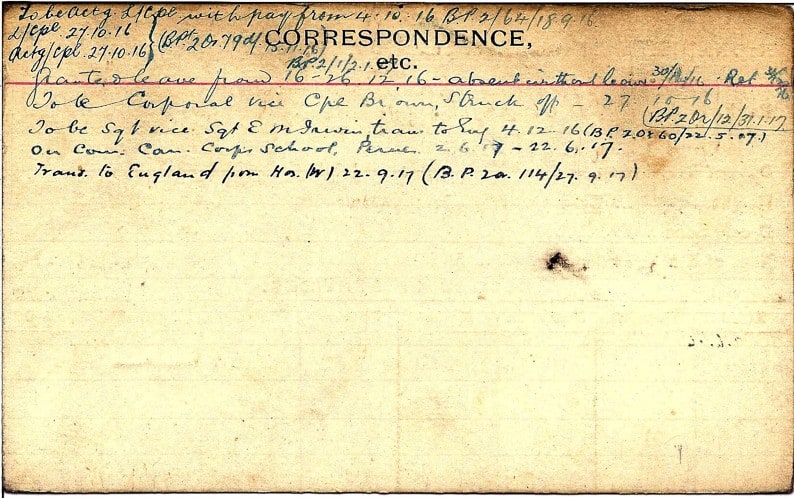 To be Actg L/Cpl with pay from 4.10.16 B.P.2/64/18.9.16
L/Cpl 27.10.16
Actg/Cpl 27.10.16
CORRESPONDENCE,
etc.
Granted leave from 16-26.12.16 - absent without leave
To be Corporal vice Cpl Brown, Struck off - 27.10.16
(B.P.2Or/12/31.1.17
To be Sgt vice Sgt E M Irwin, trans to Eng 4.12.16 (B.P.2.Or 60/22.5.07.)
On Com: Can. Corps School, Pernes 2.6.17 - 22.6.17.
Trans. to England from Hos. (W) 22.9.17 (B.P. 2or. 114/27.9.17)